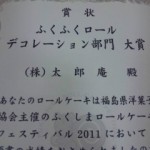 賞状
ふくふくロール
デコレーション部門 大賞
(株)太郎庵 殿
あなたのロールケーキは福島県洋菓子
協会主催のふくしまロールケーキ
フェスティバル2011において